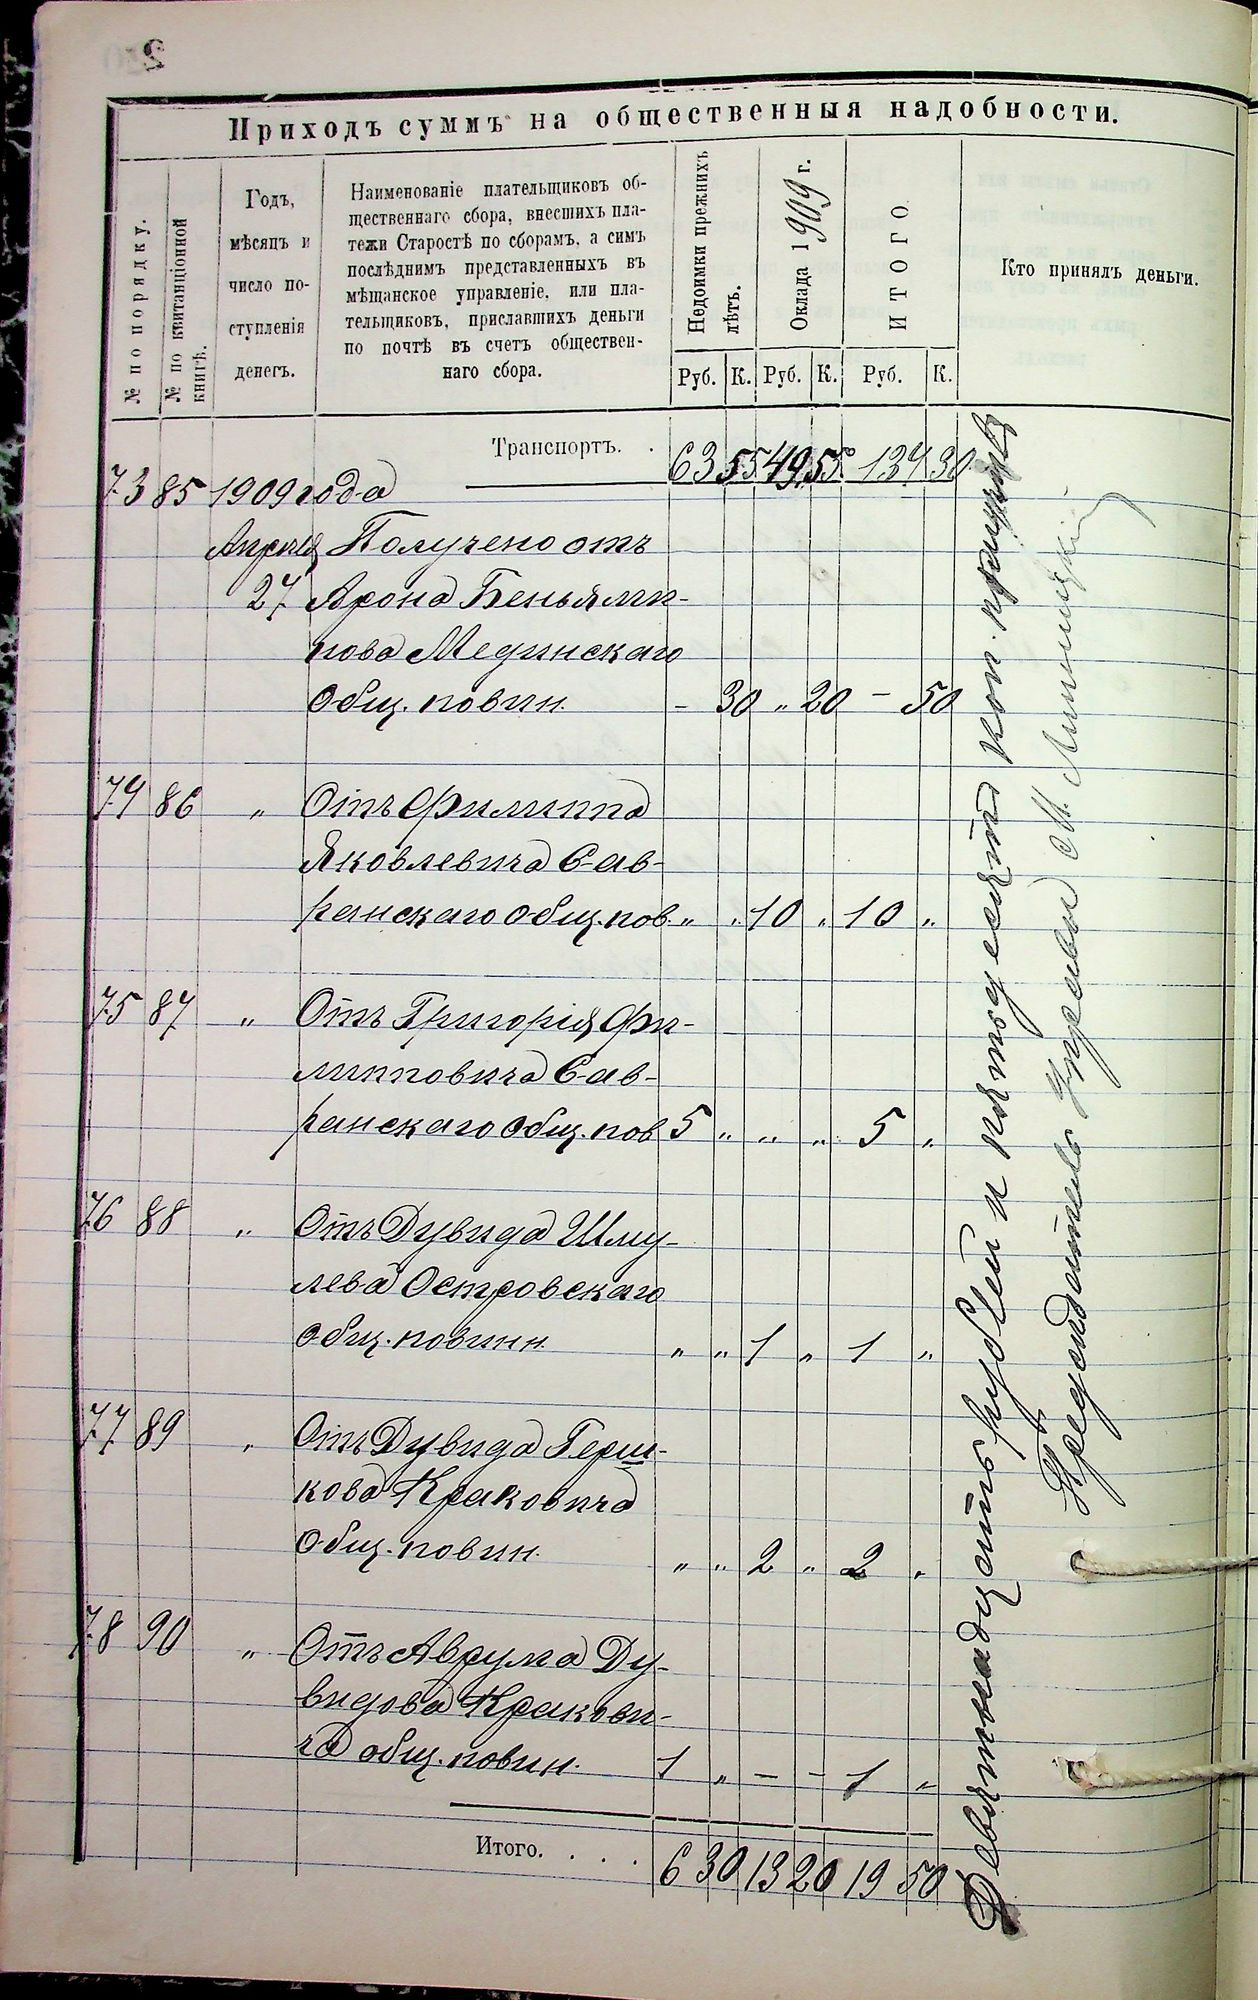 Приходъ суммъ на общественныя надобности.
№ по порядку.
№ по квитанціонной книгѣ.
Годъ,
мѣсяцъ и
число по-
ступленія
денегъ.
Наименованіе плательщиковъ об-
щественнаго сбора, внесшихъ пла-
тежи Старостѣ по сборамъ, а симъ
послѣднимъ представленныхъ въ
мѣщанское управленіе, или пла-
тельщиковъ, приславшихъ деньги
по почтѣ въ счетъ обществен-
наго сбора.
Недоимки прежнихъ лѣтъ.
Оклада 1909 г.
ИТОГО
Кто принялъ деньги.
Руб. К. Руб. К. Руб. К.
Транспортъ. . 63 55 49 55 134 30
73 85 1909 года
Апрѣля Получено отъ
27 Арона Беньями-
нова Мединскаго
общ. повин. - 30 „ 20 - 50
74 86 „ Отъ Филиппа
Яковлевича Сав-
ранскаго общ. пов. „ „ 10 „ 10 „
75 87 „ Отъ Григорія Фи-
липповича Сав-
ранскаго общ. пов 5 „ „ „ 5 „
76 88 „ Отъ Дувида Шму-
лева Островскаго
общ. повинн. „ „ 1 „ 1 „
77 89 „ Отъ Дувида Герш-
кова Краковича
общ. повин. „ „ 2 „ 2 „
78 90 „ Отъ Аврума Ду-
видова Кракови-
ча общ. повин. 1 „ - - 1 „
Итого. . . . 6 30 13 20 19 50
Девятнадцать рублей и пятьдесятъ коп. принялъ
Предсѣдатель Управы М.